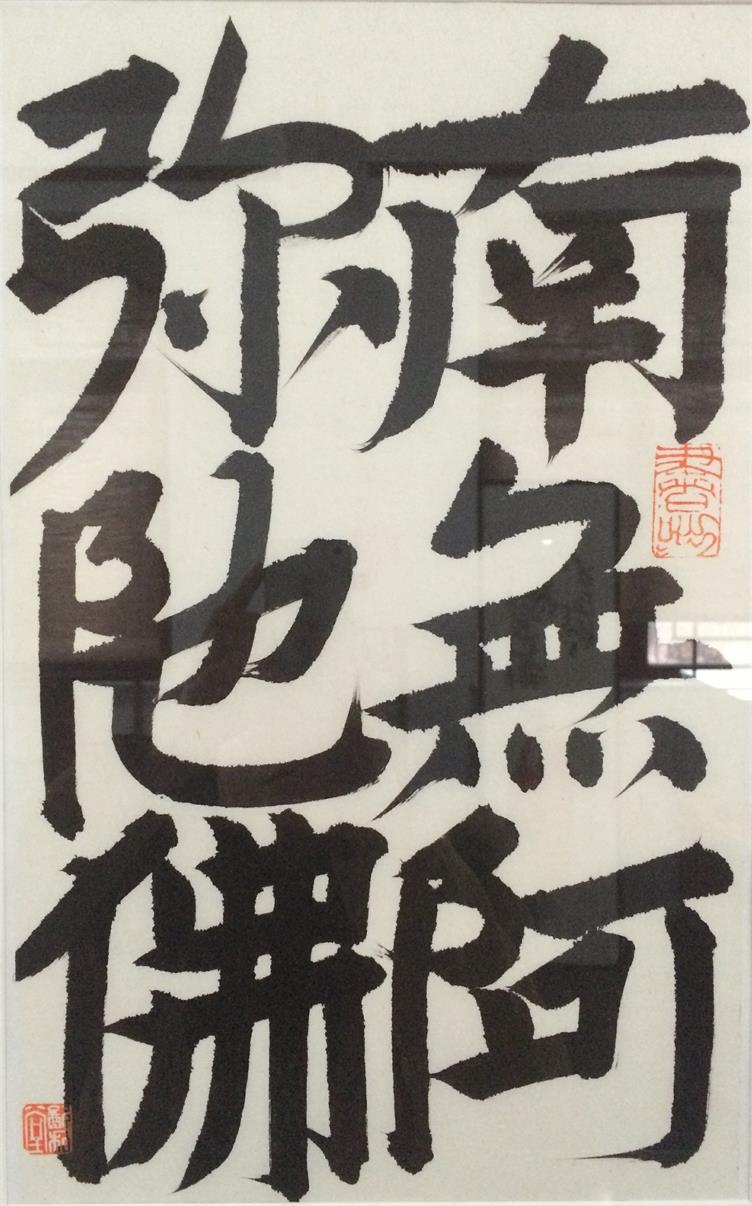 南無阿
弥陀佛